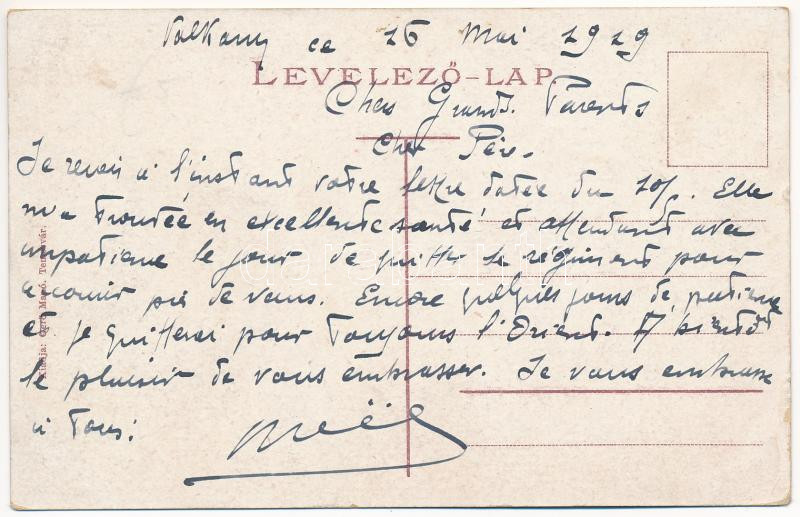 Valkany ce 26 Mai 1919
LEVELEZŐ-LAP.
Chers Grands Parents
Cher Père.
Je reçois à l'instant votre lettre datée du 10/. Elle
m'a trouvée en excellente santé et attendant avec
impatience le jour de quitter le régiment pour
accourir près de vous. Encore quelques jours de patience
et je quitterai pour toujours l'Orient. A bientôt
le plaisir de vous embrasser. Je vous embrasse
à tous.
Noël
Kiadja: Mano. Temesvár.